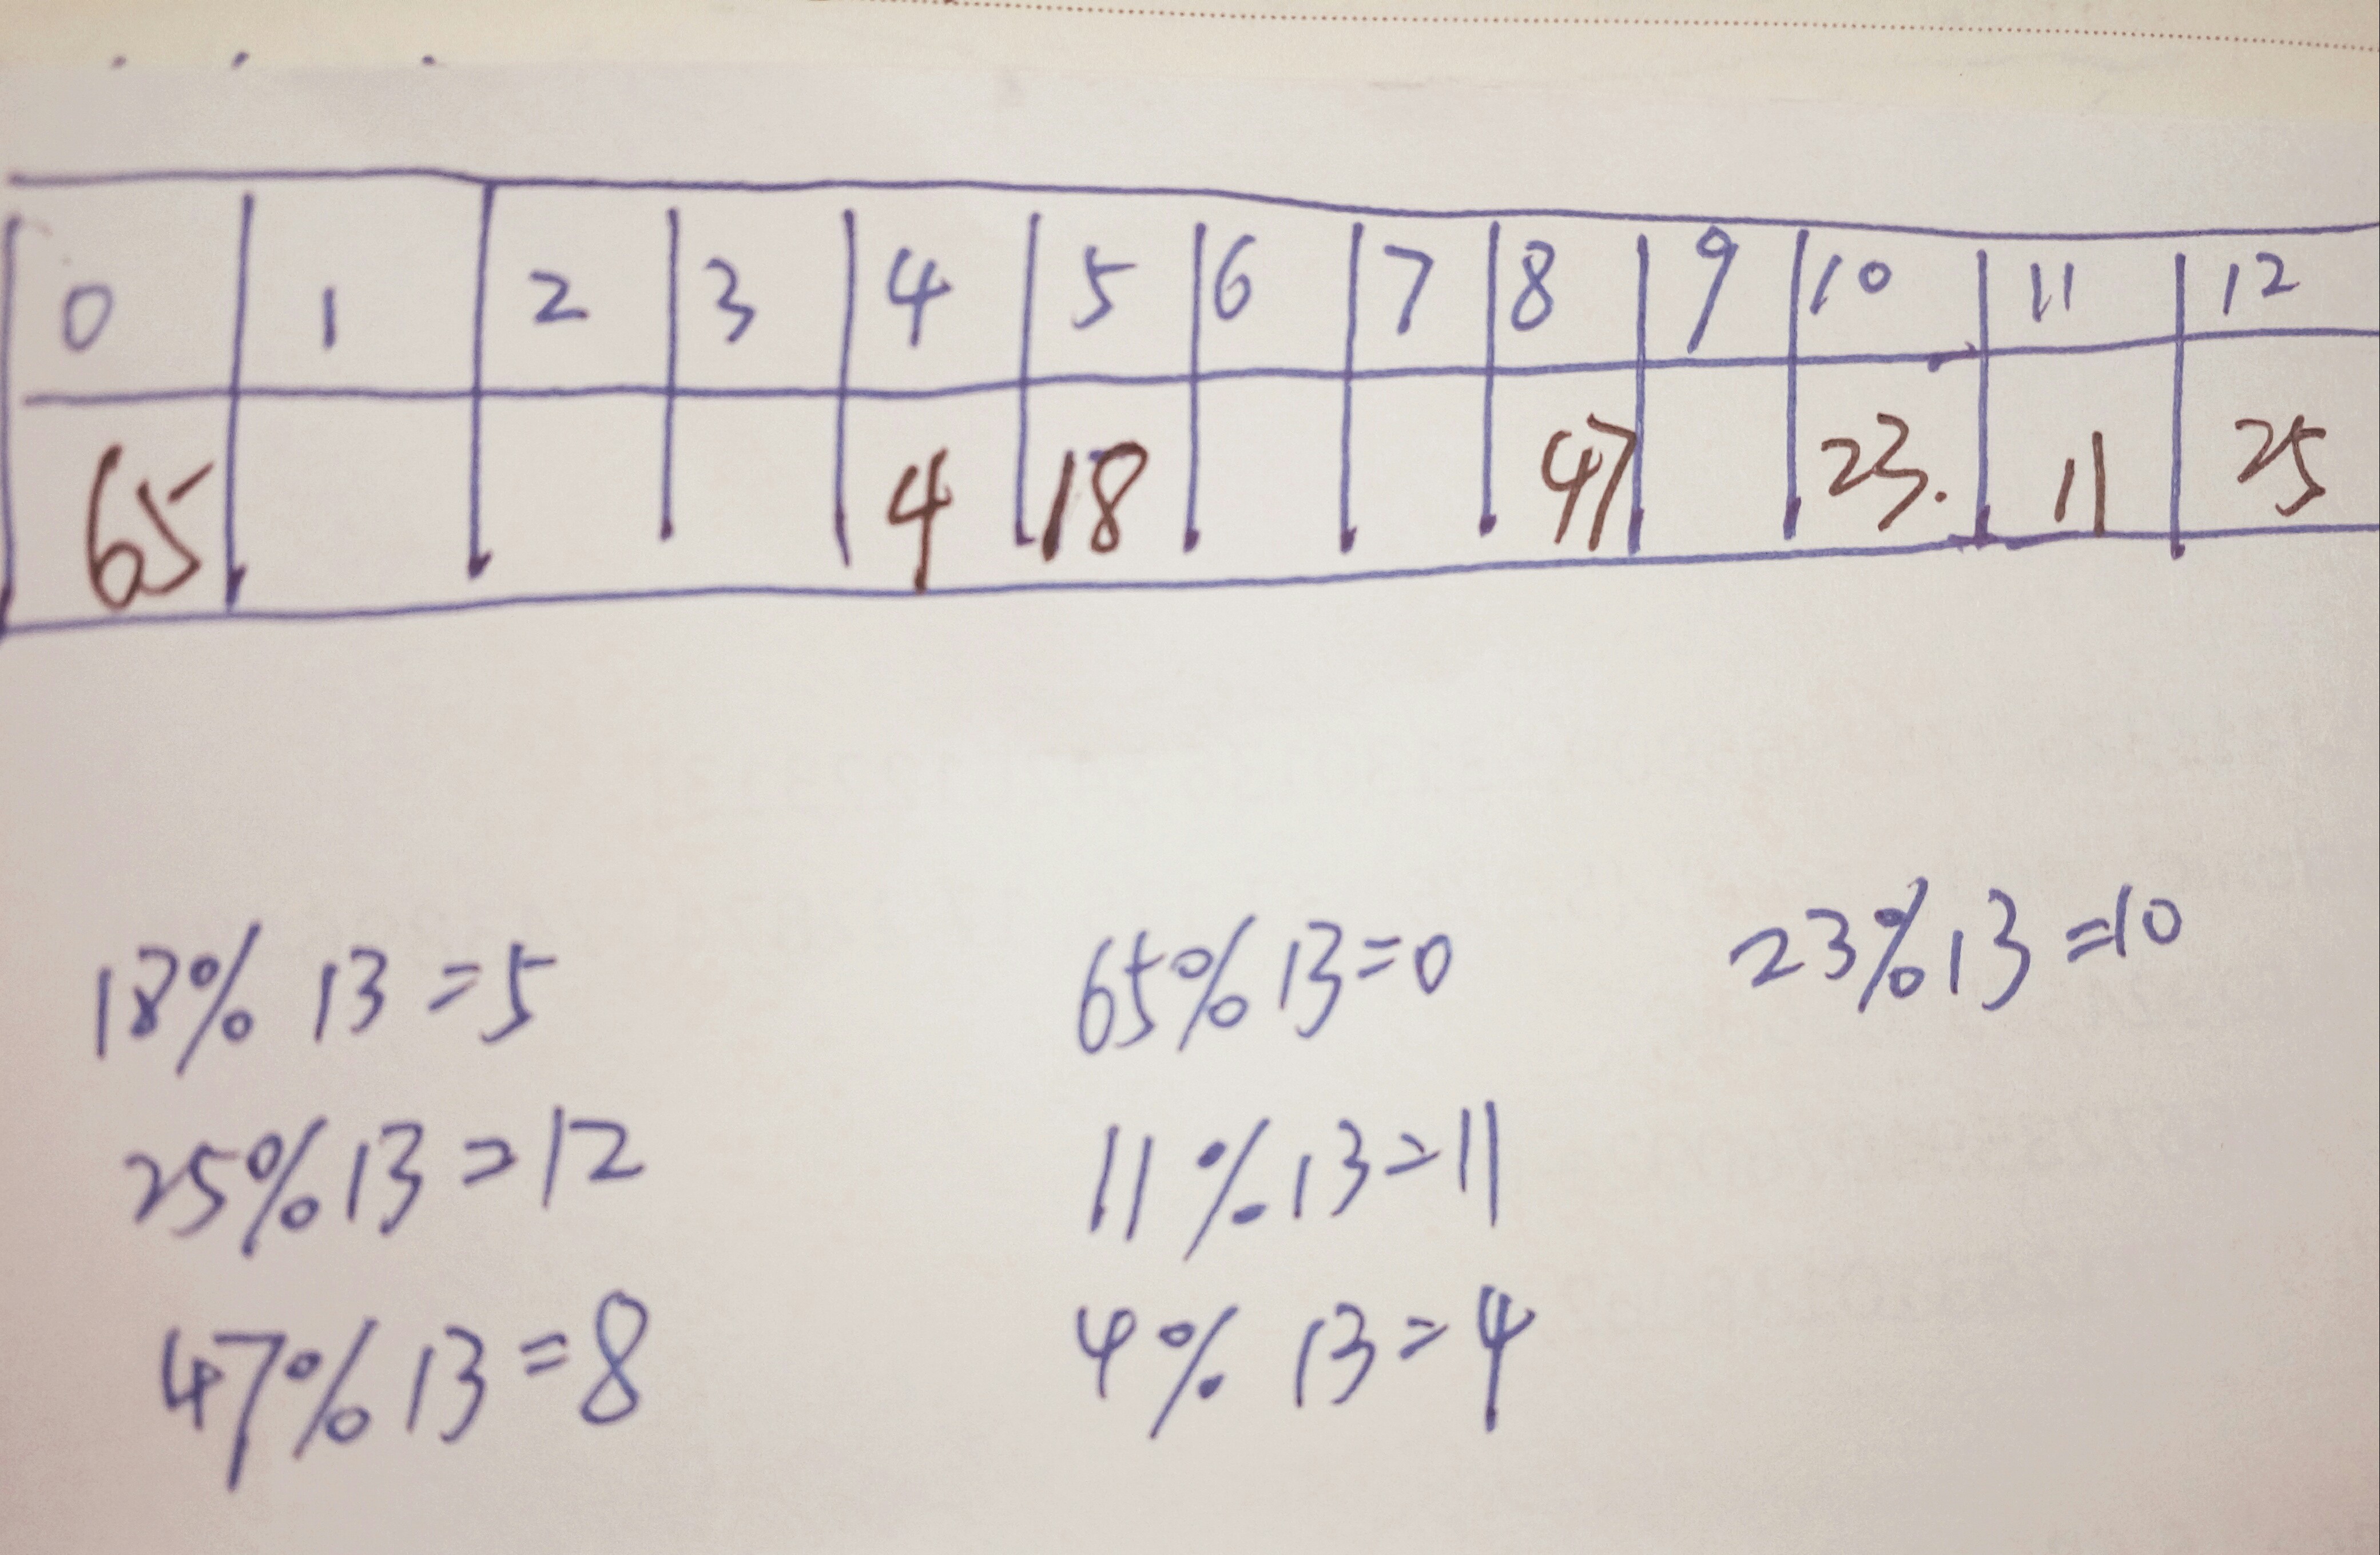 0 1 2 3 4 5 6 7 8 9 10 11 12
65 4 18 47 23. 11 25
18% 13 = 5 65% 13 = 0 23% 13 = 10
25% 13 = 12 11 % 13 = 11
47% 13 = 8 4% 13 = 4